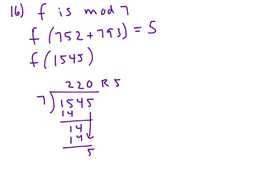 16) f is mod 7
f (752 + 793) = 5
f (1545)
220 R 5
7 1545
14
14
14
5